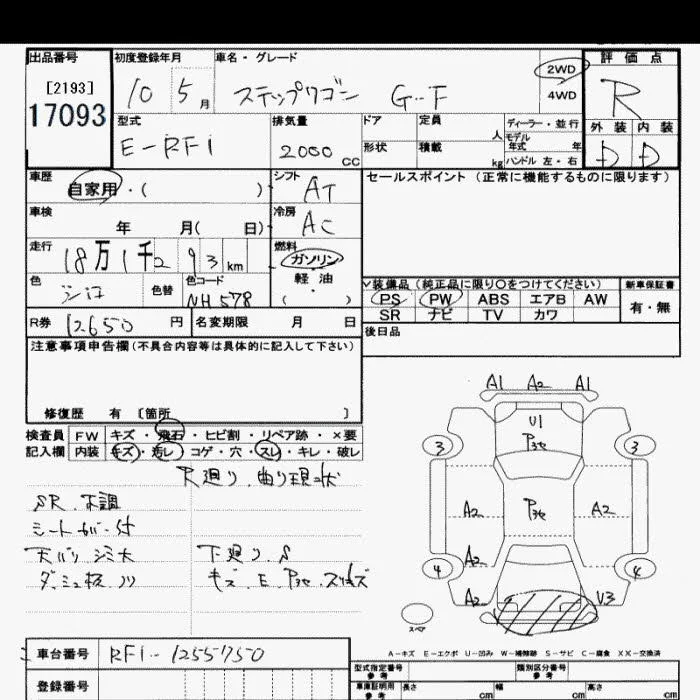 出品番号 初度登録年月 車名・グレード 評価点
[2193]
17093
10 5月 ステップワゴン G-F 2WD 4WD R
型式 排気量 ドア 定員 人 ディーラー・並行 外装 内装
E-RF1 2000 CC 形状 積載 kg モデル年式 年 ハンドル 左・右 D D
車歴 自家用・( ) シフト AT セールスポイント (正常に機能するものに限ります)
車検 年 月( 日) 冷房 AC
走行 18万1千293km 燃料 ガソリン 軽油 ( ・ )
色 シロ 色替 色コード NH578
✓装備品(純正品に限り〇をつけてください) 新車保証書
PS PW ABS エアB AW 有・無
SR ナビ TV カワ
R券 12650 円 名変期限 月 日 後日品
注意事項申告欄(不具合内容等は具体的に記入して下さい)
修復歴 有 [箇所 ]
検査員 FW キズ・飛石・ヒビ割・リペア跡・×要
記入欄 内装 キズ・汚レ・コゲ・穴・スレ・キレ・破レ
R廻り、曲り現状
SR 不調
シートカバー付
天バリ シミ大 下廻り、S
ダッシュ板 ノリ キズ、E、Pヨゴレ、スリキズ
A1 A2 A1
U1
3 3
A2 A2
A2
4 4
A2 U3
スペア
A-キズ E-エクボ U-凹み W-補修跡 S-サビ C-腐食 XX-交換済
車台番号 RF1-1255750
登録番号
型式指定番号 参考 類別区分番号 参考
車庫証明用 参考 長さ cm 幅 cm 高さ cm